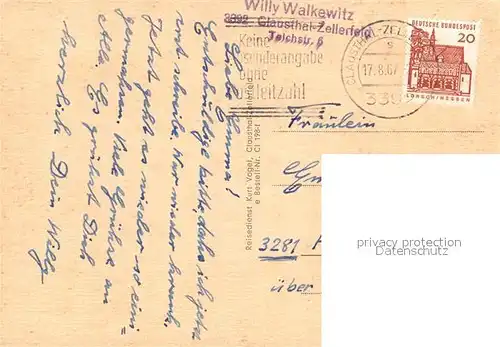 Willy Walkewitz
3392 Clausthal-Zellerfeld
Teichstr. 6
Keine
Absenderangabe
ohne
Postleitzahl
CLAUSTHAL-ZEL
17.8.67
339
DEUTSCHE BUNDESPOST
20
LORSCH/HESSEN
Liebe Emma!
Entschuldige bitte, daß ich jetzt
erst schreibe. War wieder krank.
Jetzt geht es wieder so eini=
germaßen. Viele Grüße an
Alle. Es grüßt Dich
herzlich Dein Willy
Reisedienst Kurt Vogel, Clausthal-Zellerfeld
e Bestell-Nr. Cl 198-f
Fräulein
3281
über
privacy protection
Datenschutz